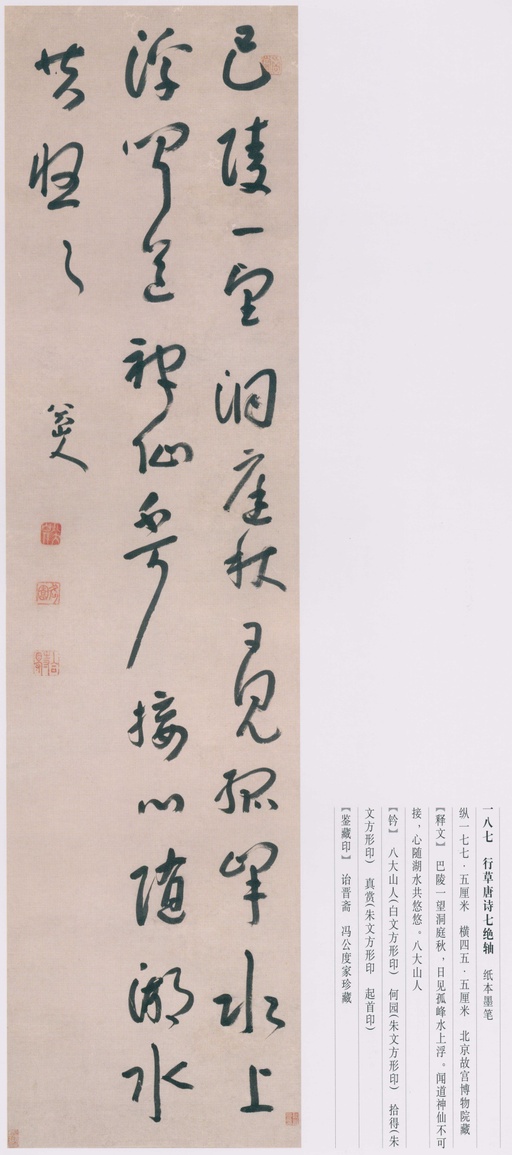 巴陵一望洞庭秋日見孤峰水上
浮聞道神仙不可接心隨湖水
共悠々
八大山人
一八七　行草唐诗七绝轴　纸本墨笔
纵一七七·五厘米　横四五·五厘米　北京故宫博物院藏
【释文】　巴陵一望洞庭秋，日见孤峰水上浮。闻道神仙不可
接，心随湖水共悠悠。八大山人
【钤】　八大山人（白文方形印）　何园（朱文方形印）　拾得（朱
文方形印）　真赏（朱文方形印　起首印）
【鉴藏印】　诒晋斋　冯公度家珍藏